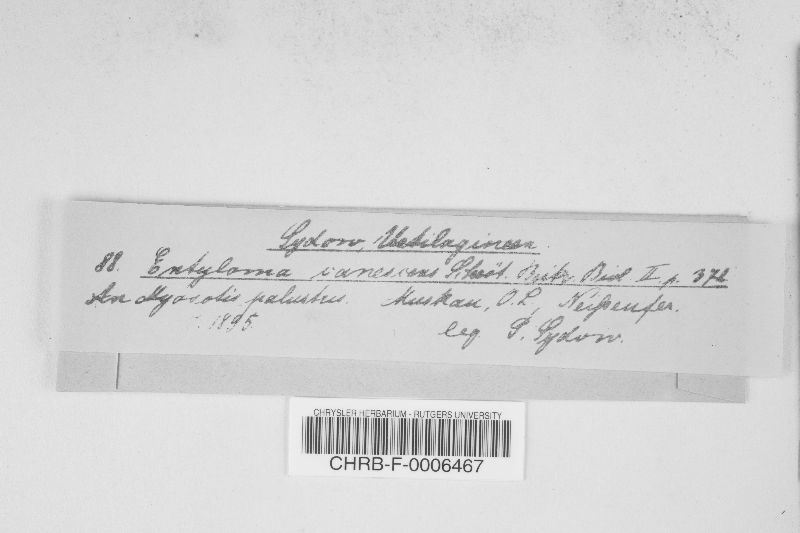 Sydow, Ustilagineen.
88. Entyloma canescens Schröt. Beitr. Biol. II p. 372
An Myosotis palustris. Muskau, O. L., Neißeufer.
1895. leg. P. Sydow.
CHRYSLER HERBARIUM - RUTGERS UNIVERSITY
CHRB-F-0006467